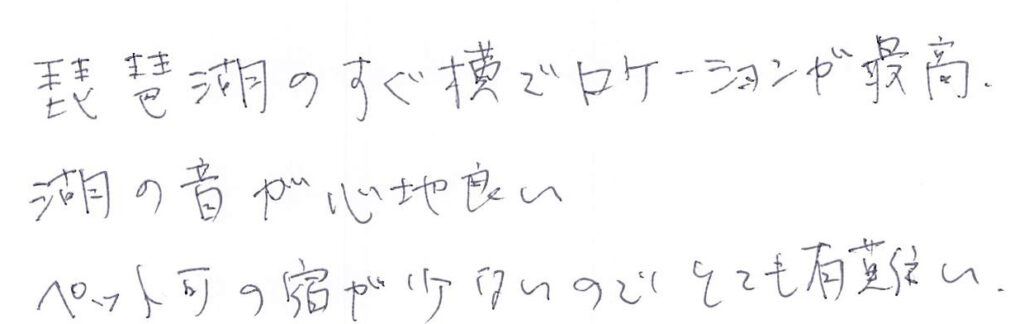 琵琶湖のすぐ横でロケーションが最高.
湖の音が心地良い
ペット可の宿が少ないのでとても有難い.